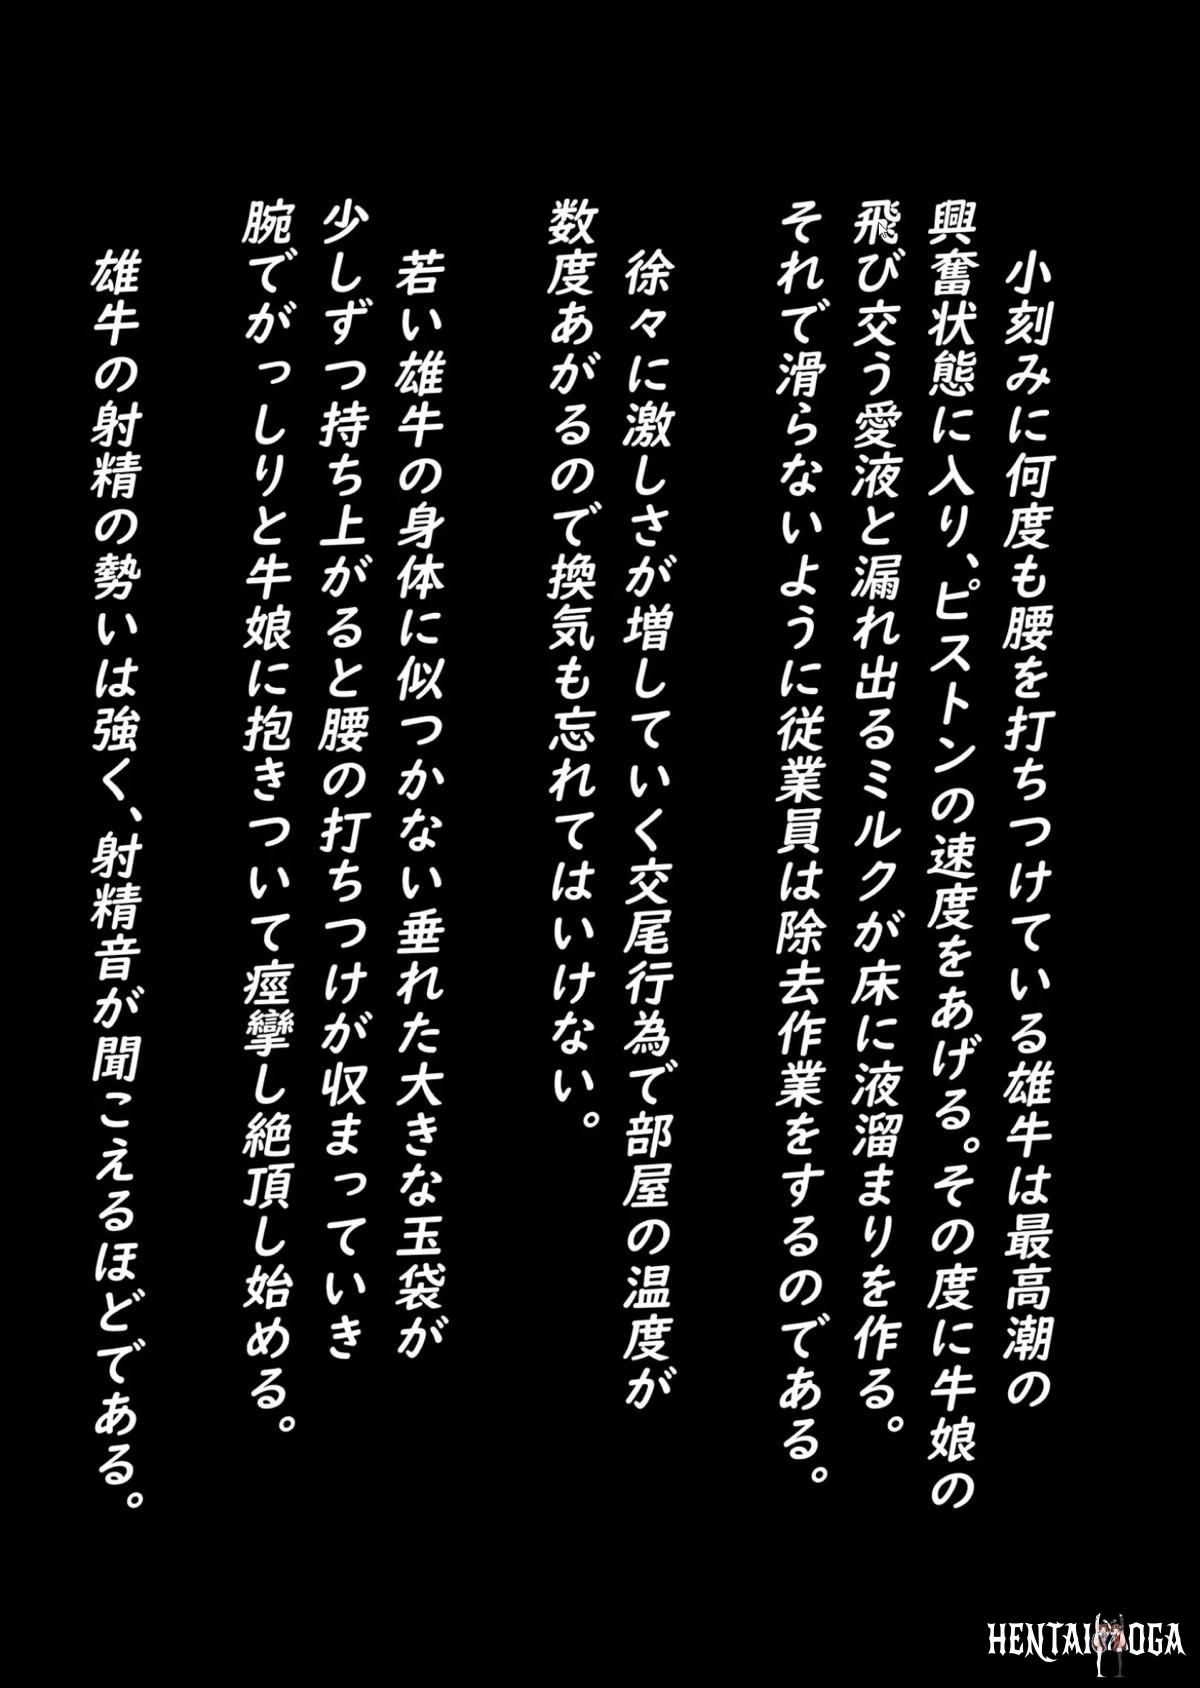 小刻みに何度も腰を打ちつけている雄牛は最高潮の
興奮状態に入り、ピストンの速度をあげる。その度に牛娘の
飛び交う愛液と漏れ出るミルクが床に液溜まりを作る。
それで滑らないように従業員は除去作業をするのである。
徐々に激しさが増していく交尾行為で部屋の温度が
数度あがるので換気も忘れてはいけない。
若い雄牛の身体に似つかない垂れた大きな玉袋が
少しずつ持ち上がると腰の打ちつけが収まっていき
腕でがっしりと牛娘に抱きついて痙攣し絶頂し始める。
雄牛の射精の勢いは強く、射精音が聞こえるほどである。
HENTAI OGA